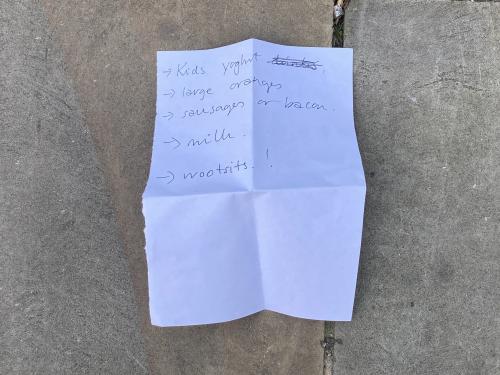 → Kids yoghurt
→ large oranges
→ sausages or bacon.
→ milk.
→ wootsits. !